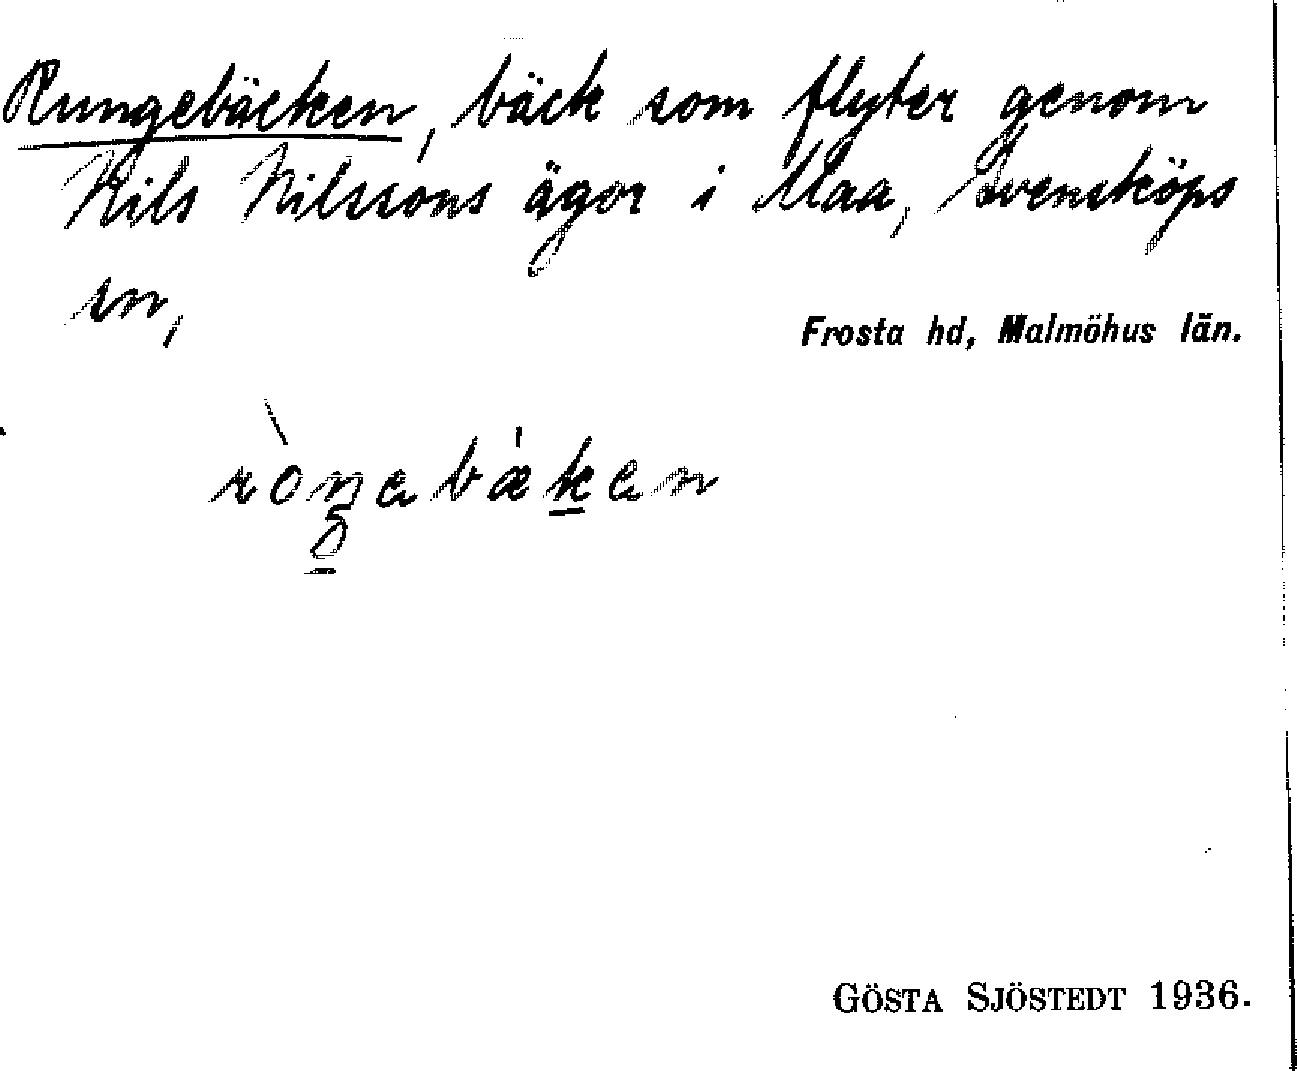 Rungebäcken, bäck som flyter genom
Nils Nilssons ägor i Maa, Svensköps
sn,
Frosta hd, Malmöhus län.
GÖSTA SJÖSTEDT 1936.